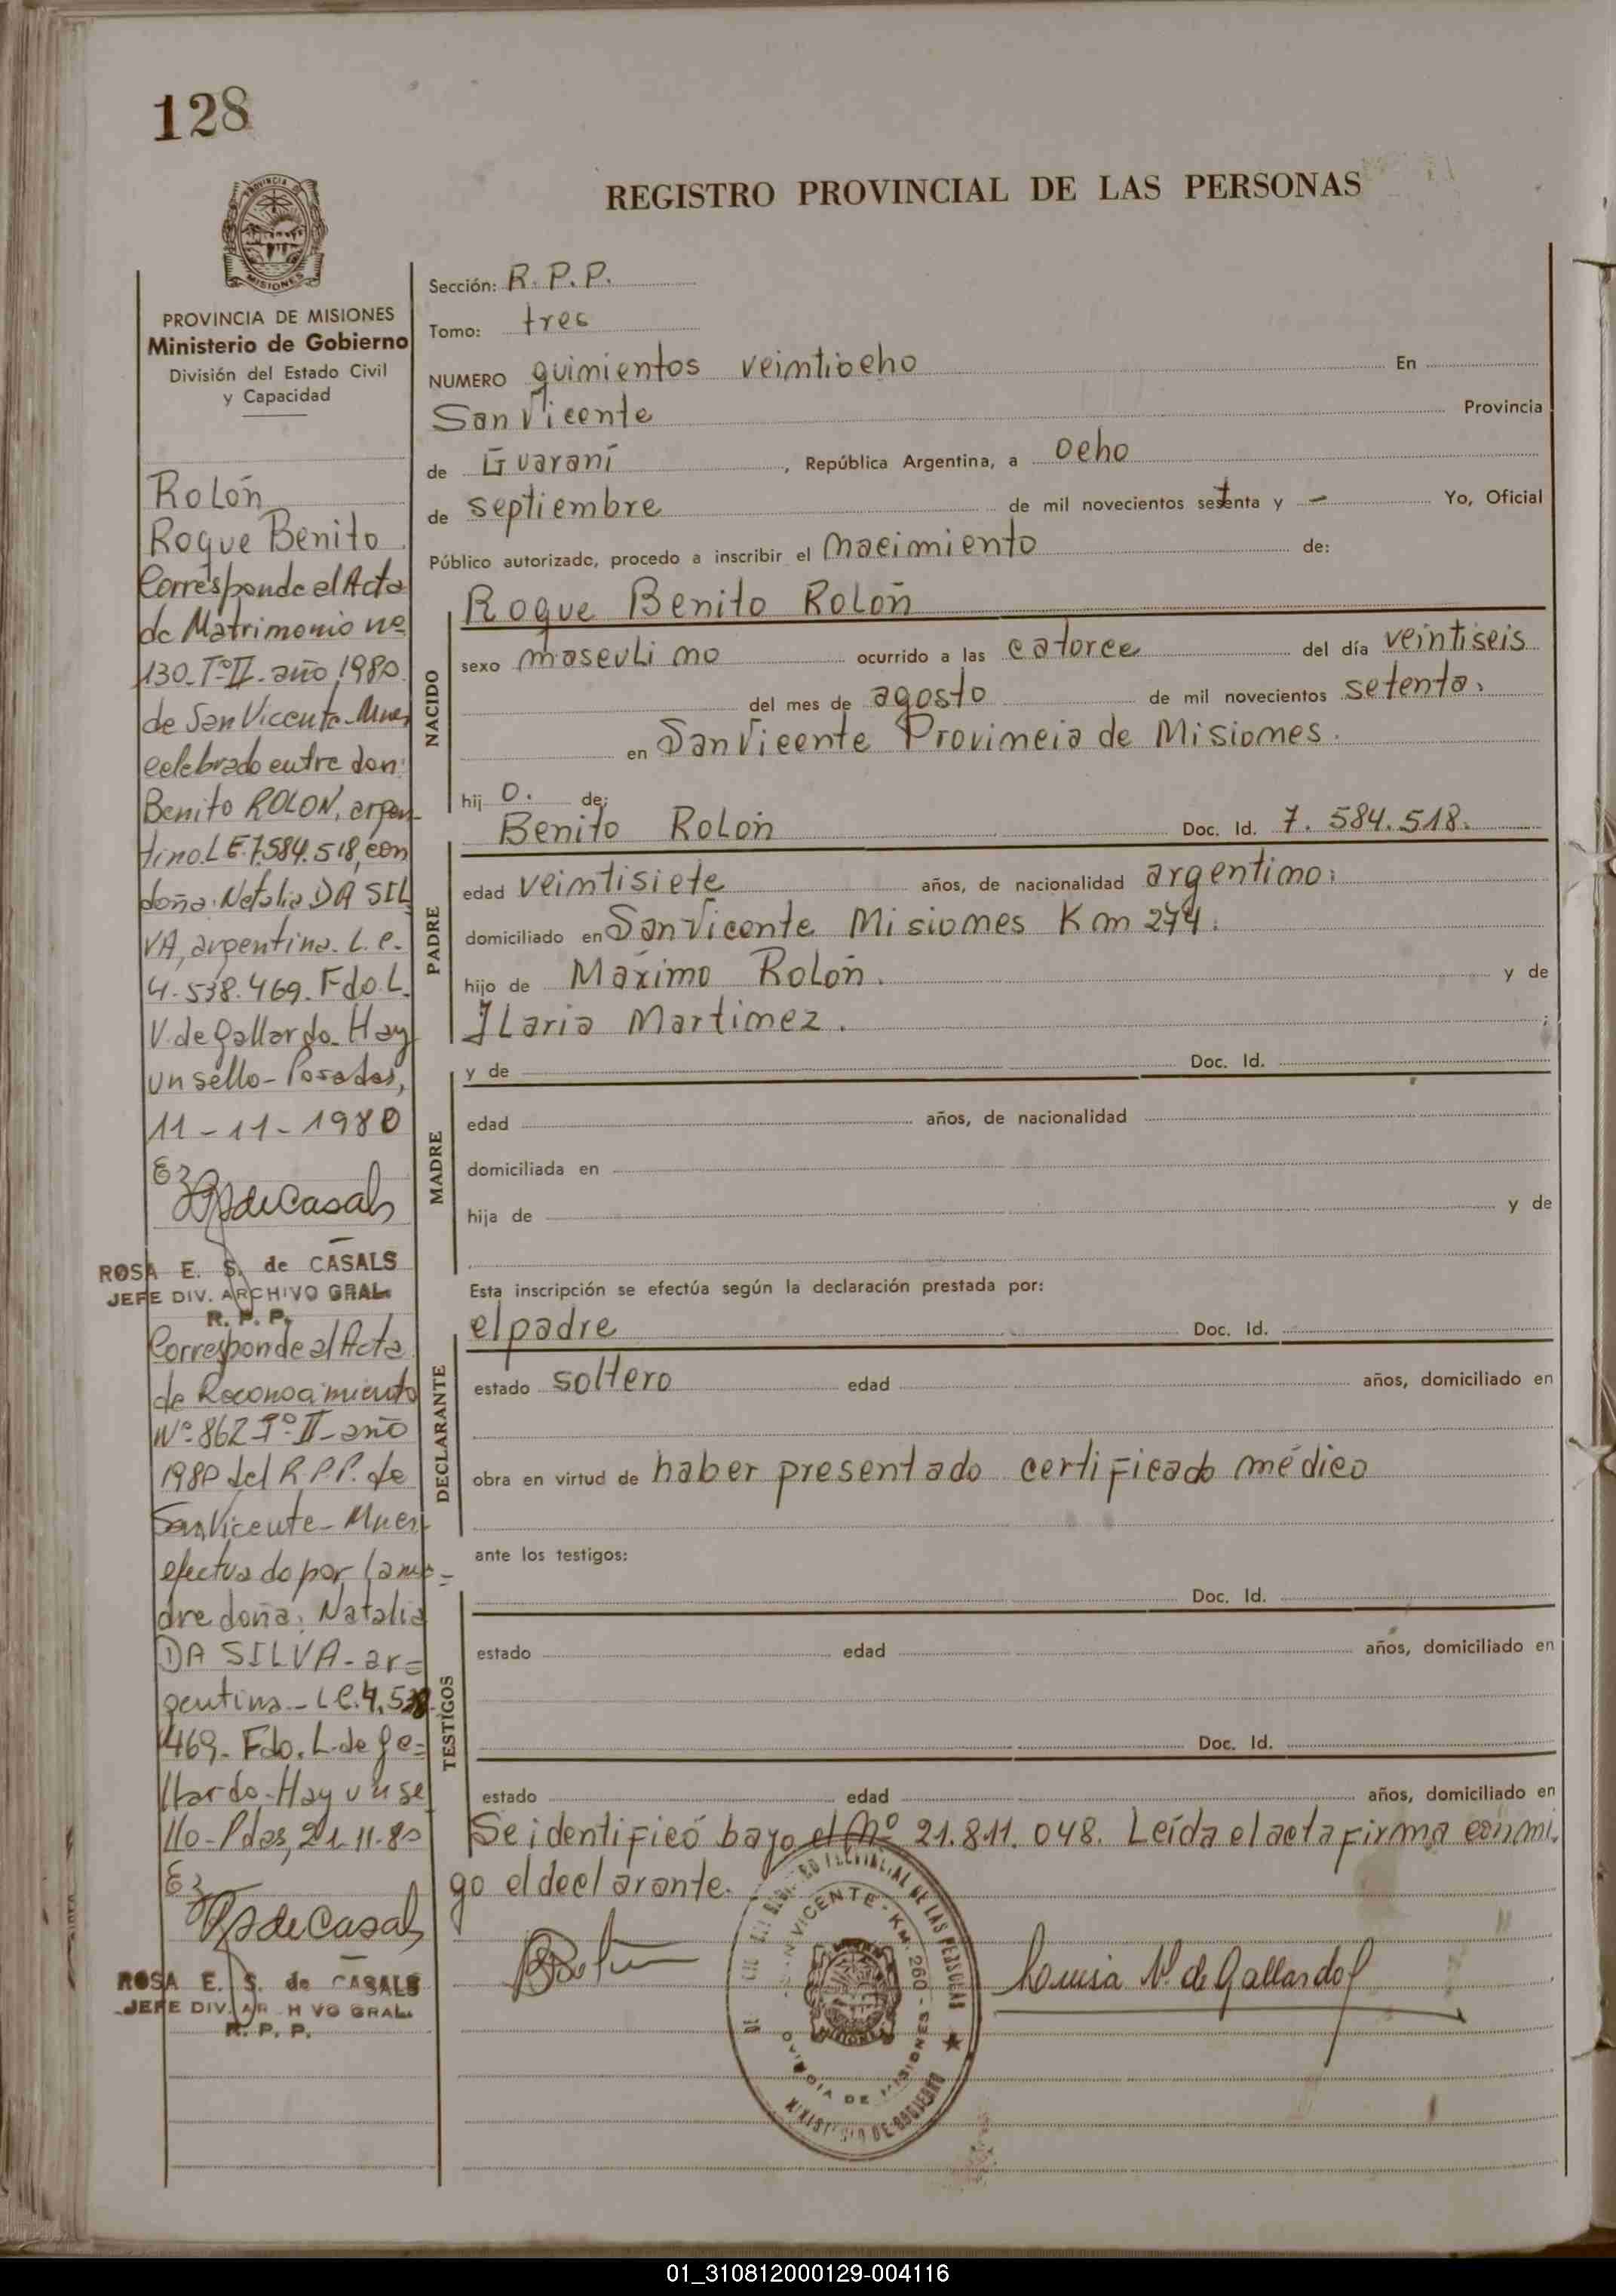 128
REGISTRO PROVINCIAL DE LAS PERSONAS
PROVINCIA DE MISIONES
Ministerio de Gobierno
División del Estado Civil
y Capacidad
Rolón
Roque Benito
Corresponde el Acta
de Matrimonio nº
130. Tº II. año 1980.
de San Vicente - Mnes
celebrado entre don:
Benito ROLON, argen-
tino. L E. 7.584.518, con
doña: Natalia DA SIL
VA, argentina. L. C.
4.538.469. Fdo. L.
V. de Gallardo. Hay
un sello - Posadas,
11-11-1980
ROSA E. S. de CASALS
JEFE DIV. ARCHIVO GRAL.
R. P. P.
Corresponde al Acta
de Reconocimiento
Nº 862 Tº II - año
1980 del R.P.P. de
San Vicente - Mnes
efectuado por la ma=
dre doña: Natalia
DA SILVA - ar=
gentina - L C. 4.538.
469 - Fdo. L. de Ga=
llardo - Hay un se
llo - Pdas, 21-11-80
ROSA E. S. de CASALS
JEFE DIV. AR H VO GRAL.
R. P. P.
Sección: R. P. P.
Tomo: tres
NUMERO quinientos veintiocho En
San Vicente Provincia
de Guaraní, República Argentina, a ocho
de septiembre de mil novecientos setenta y - Yo, Oficial
Público autorizado, procedo a inscribir el nacimiento de:
NACIDO
Roque Benito Rolón
sexo masculino ocurrido a las catorce del día veintiseis
del mes de agosto de mil novecientos setenta.
en San Vicente Provincia de Misiones.
hij o. de:
PADRE
Benito Rolón Doc. Id. 7.584.518.
edad veintisiete años, de nacionalidad argentino.
domiciliado en San Vicente Misiones Km 274.
hijo de Máximo Rolón. y de
Ilaria Martinez. ;
MADRE
y de Doc. Id.
edad años, de nacionalidad
domiciliada en
hija de y de
Esta inscripción se efectúa según la declaración prestada por:
DECLARANTE
el padre Doc. Id.
estado soltero edad años, domiciliado en
obra en virtud de haber presentado certificado médico
ante los testigos:
TESTIGOS
Doc. Id.
estado edad años, domiciliado en
Doc. Id.
estado edad años, domiciliado en
Se identificó bajo el Nº 21.811.048. Leída el acta firma conmi.
go el declarante.
SAN VICENTE - KM. 260 - PROVINCIA DE MISIONES
MINISTERIO DE GOBIERNO
de Gallardo
01_310812000129-004116